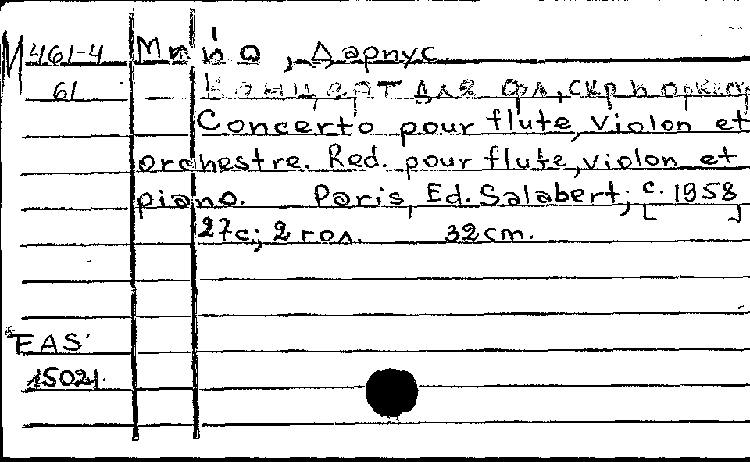 М 461-4 Мийо, Дариус
61 Концерт для фл., скр и оркест
Concerto pour flute, violon et
orchestre. Red. pour flute, violon et
piano. Paris, Ed. Salabert; [c. 1958]
27с; 2 гол. 32 cm.
EAS
15021.